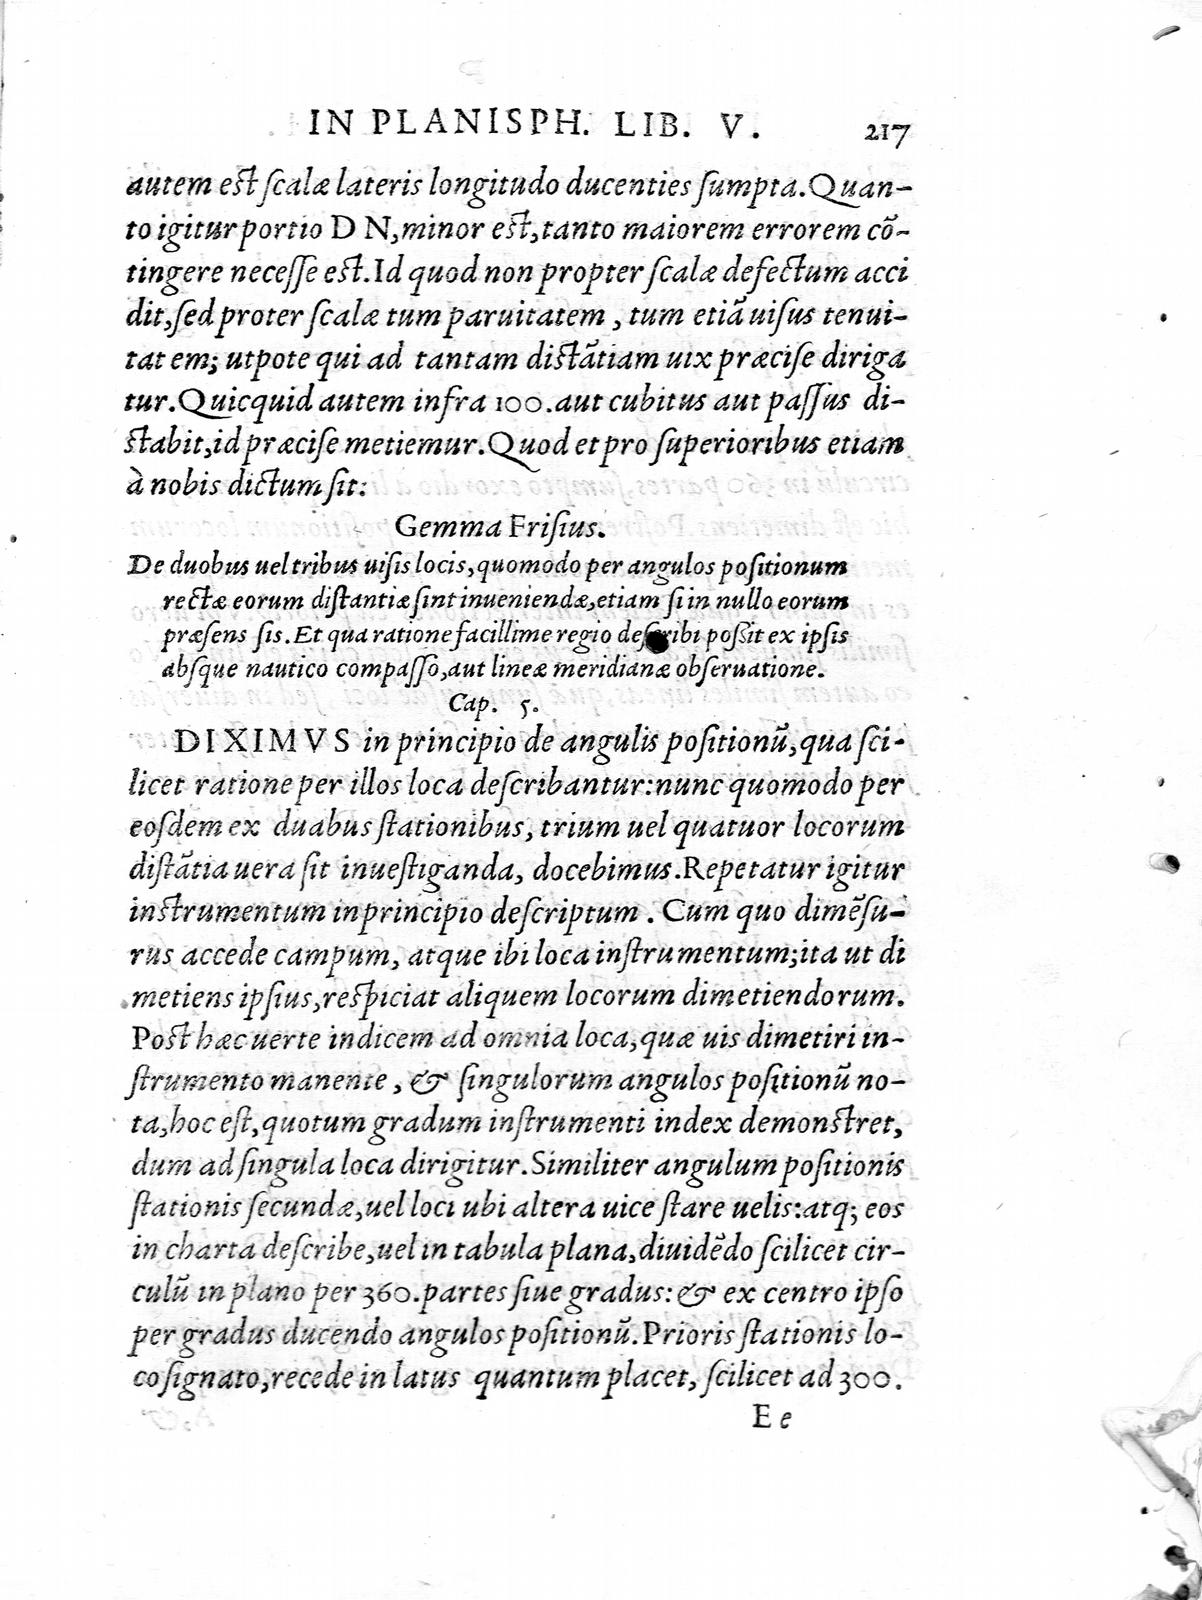 IN PLANISPH. LIB. V. 217
autem est scalæ lateris longitudo ducenties sumpta. Quan-
to igitur portio D N, minor est, tanto maiorem errorem cō-
tingere necesse est. Id quod non propter scalæ defectum acci
dit, sed proter scalæ tum paruitatem, tum etiā uisus tenui-
tat em; utpote qui ad tantam distātiam uix præcise diriga
tur. Quicquid autem infra 100. aut cubitus aut passus di-
stabit, id præcise metiemur. Quod et pro superioribus etiam
à nobis dictum sit:
Gemma Frisius.
De duobus uel tribus uisis locis, quomodo per angulos positionum
rectæ eorum distantiæ sint inueniendæ, etiam si in nullo eorum
præsens sis. Et qua ratione facillime regio describi possit ex ipsis
absque nautico compasso, aut lineæ meridianæ obseruatione.
Cap. 5.
DIXIMVS in principio de angulis positionū, qua sci-
licet ratione per illos loca describantur: nunc quomodo per
eosdem ex duabus stationibus, trium uel quatuor locorum
distātia uera sit inuestiganda, docebimus. Repetatur igitur
instrumentum in principio descriptum. Cum quo dimēsu-
rus accede campum, atque ibi loca instrumentum; ita ut di
metiens ipsius, respiciat aliquem locorum dimetiendorum.
Post hæc uerte indicem ad omnia loca, quæ uis dimetiri in-
strumento manente, & singulorum angulos positionū no-
ta, hoc est, quotum gradum instrumenti index demonstret,
dum ad singula loca dirigitur. Similiter angulum positionis
stationis secundæ, uel loci ubi altera uice stare uelis: atq; eos
in charta describe, uel in tabula plana, diuidēdo scilicet cir-
culū in plano per 360. partes siue gradus: & ex centro ipso
per gradus ducendo angulos positionū. Prioris stationis lo-
co signato, recede in latus quantum placet, scilicet ad 300.
E e